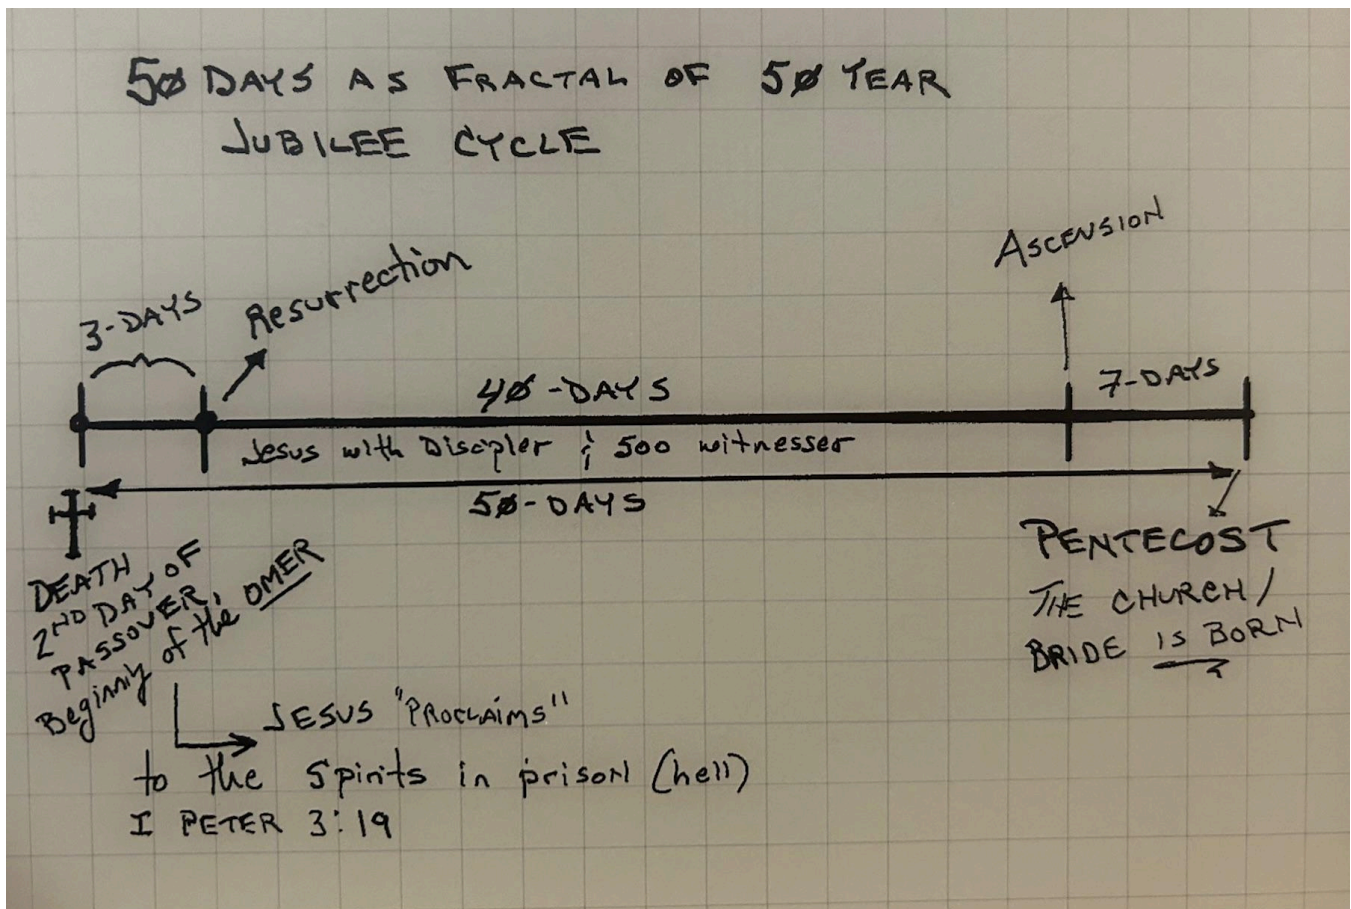 50 DAYS AS FRACTAL OF 50 YEAR
JUBILEE CYCLE
ASCENSION
Resurrection
3-DAYS
40-DAYS
7-DAYS
Jesus with Discipler & 500 witnesser
50-DAYS
DEATH
2ND DAY OF
PASSOVER,
Beginniy of the OMER
PENTECOST
THE CHURCH/
BRIDE IS BORN
JESUS "PROCLAIMS"
to the Spirits in prison (hell)
I PETER 3:19